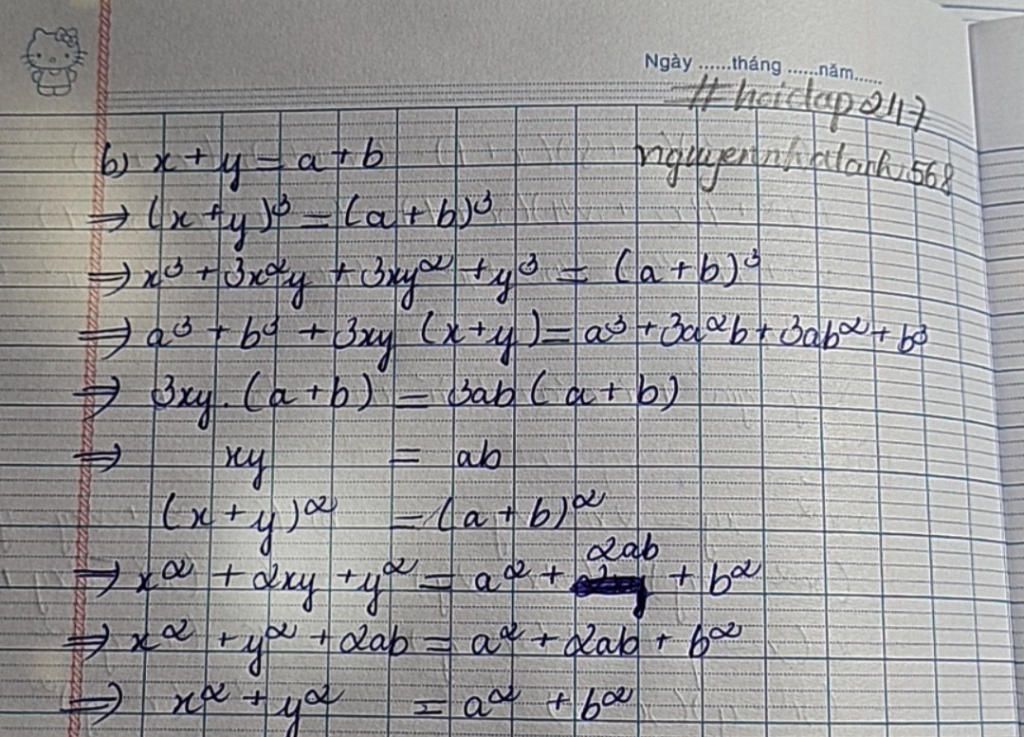 Ngày ......tháng ......năm......
#hoidap247
nguyennhatanh568
b) x + y = a + b
⇒ (x + y)³ = (a + b)³
⇒ x³ + 3x²y + 3xy² + y³ = (a + b)³
⇒ a³ + b³ + 3xy (x + y) = a³ + 3a²b + 3ab² + b³
⇒ 3xy. (a + b) = 3ab (a + b)
⇒ xy = ab
(x + y)² = (a + b)²
⇒ x² + 2xy + y² = a² + 2ab + b²
⇒ x² + y² + 2ab = a² + 2ab + b²
⇒ x² + y² = a² + b²